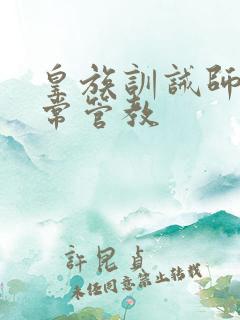 皇族訓誡師
常管教
許昆貞
未經同意禁止轉載